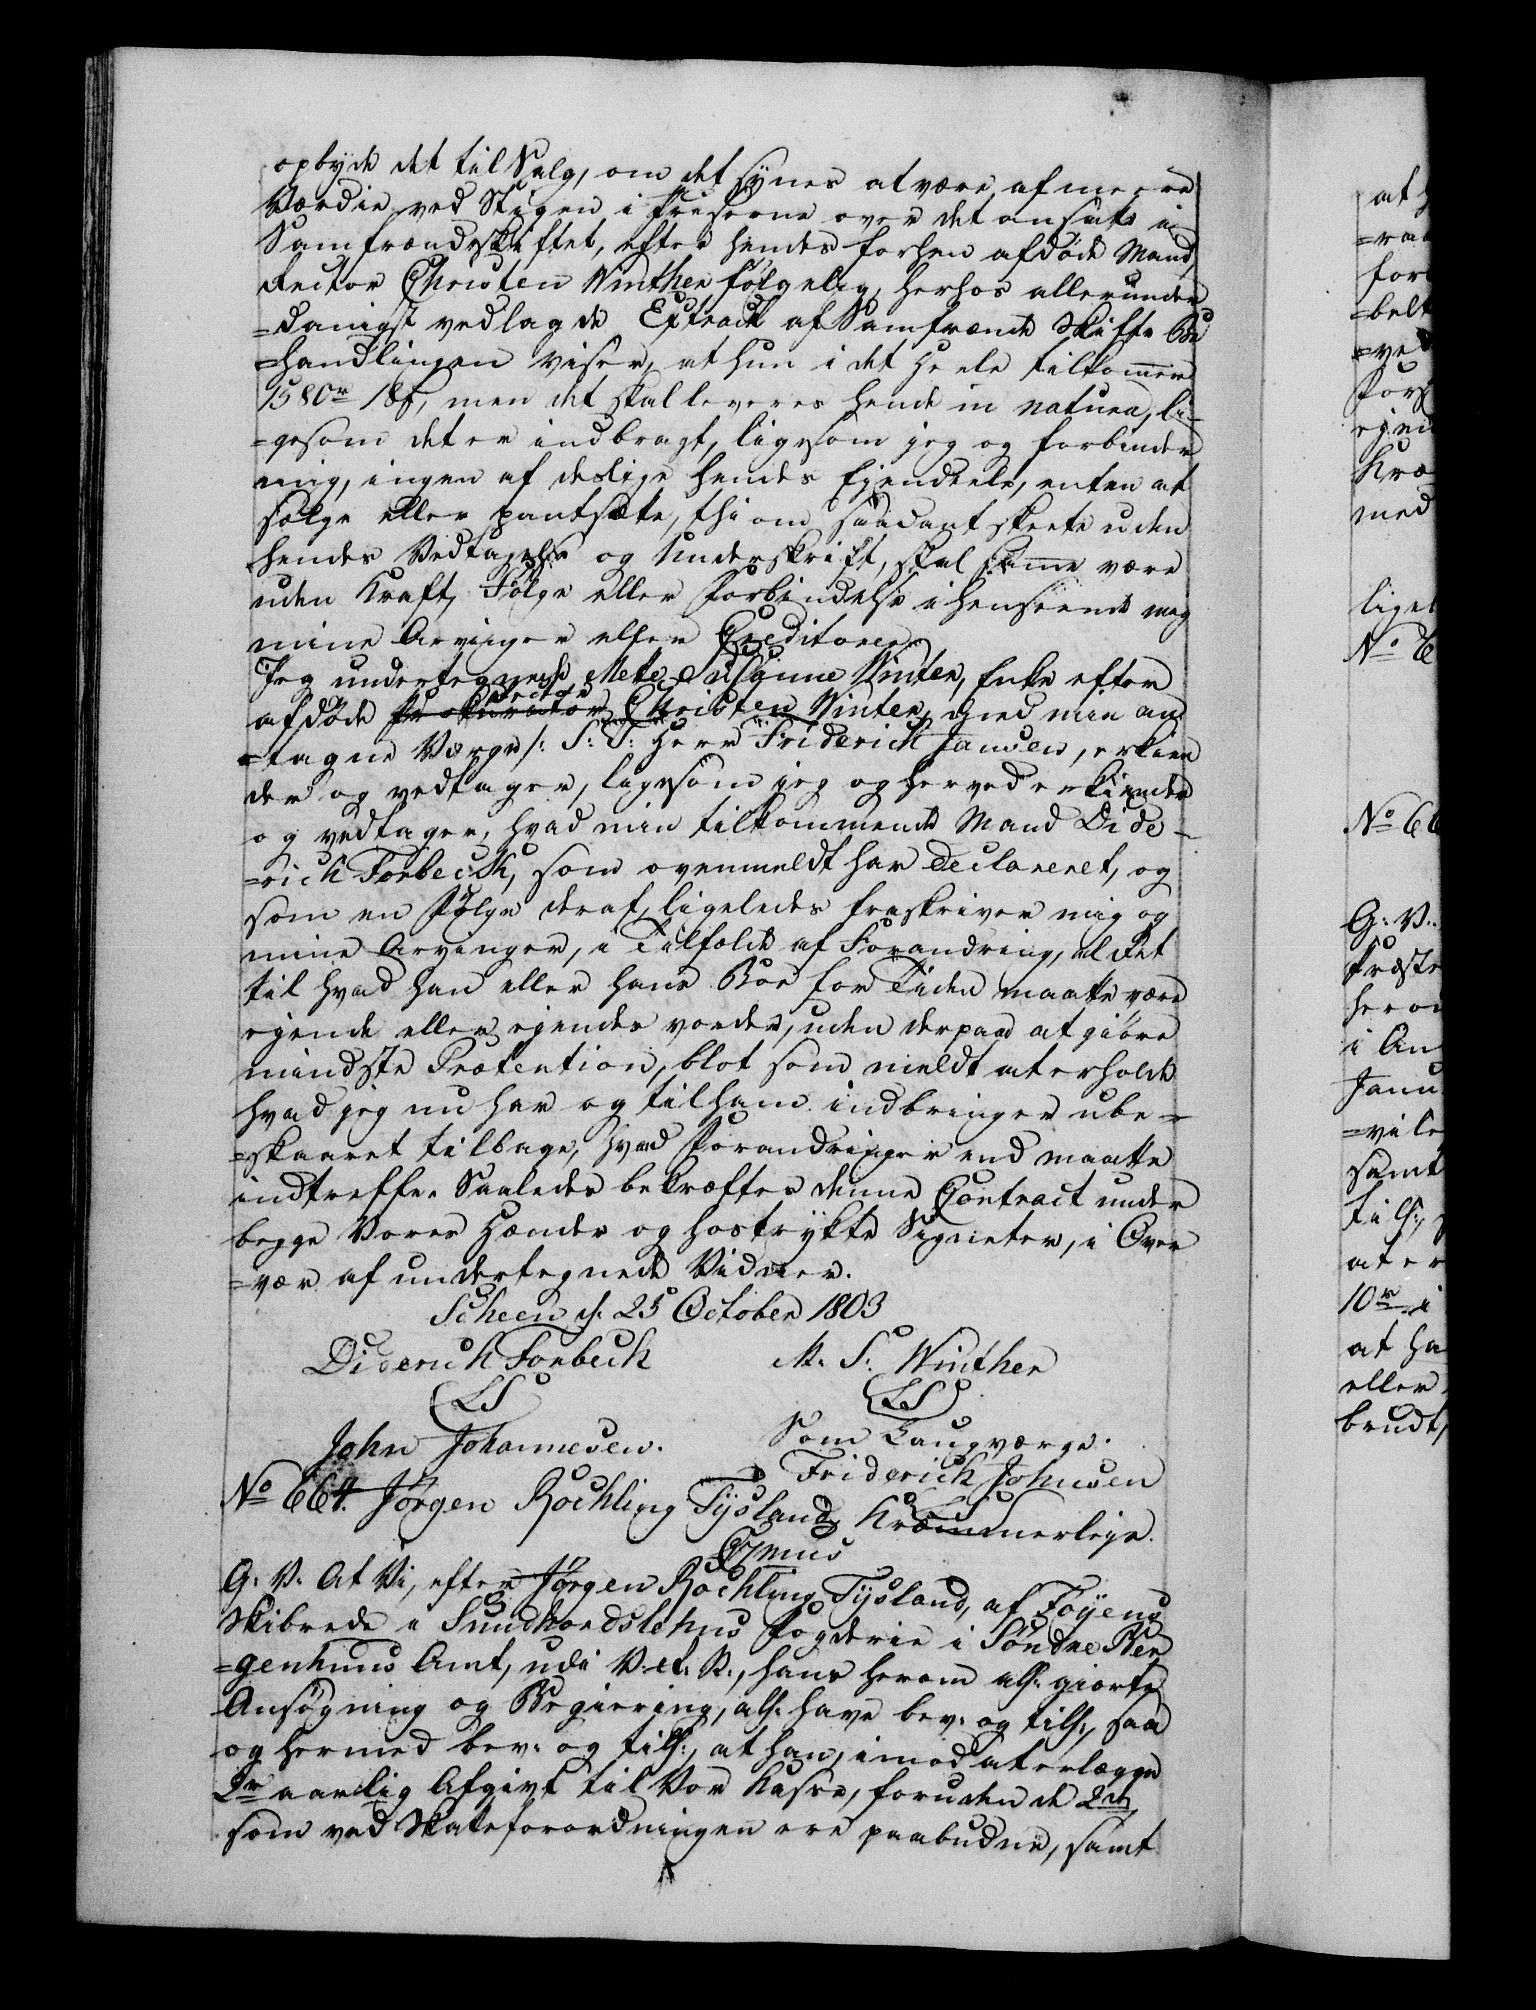 opbyde det til Salg, om det synes at være af meere
Værdie ved Stigen i Priserne over det ansatte i
Samfrændskiftet, efter hendes forhen afdøde Mand,
Rector Christen Winther følgelig, herhos allerunder
=danigst vedlagde Extract af Samfrænde Skifte Be
=handlingen viser, at hun i det Heele tilkommer
1580r 18s, men det skal leveres hende in natura, li=
=gesom det er indbragt, ligesom jeg og forbinder
mig, ingen af deslige hendes Ejendeele, enten at
sælge eller pantsætte, thi om saadant skeete uden
hendes Vedtagelse og Underskrift, skal samme være
uden Kraft, Følge eller Forbindelse i henseende meg
mine Arvinger eller Creditorer.
Jeg undertegnede Mette Susanne Winter, Enke efter
Rector
afdøde Prokurator Christen Winter, med min an
=tagne Værge /: S: T: Herr Friderich Jansen, erkien
der og vedtager, ligesom jeg og herved erkiender
og vedtager, hvad min tilkommende Mand Dide=
=rich Forbeck, som ovenmeldt har declareret, og
som en Følge deraf, ligeledes fraskriver mig og
mine Arvinger, i Tilfælde af Forandring, al Ret
til hvad han eller hans Boe for Tiden maatte være
ejende eller ejendes vorder, uden derpaa at giøre
mindste Prætention, blot som meldt at erholde
hvad jeg nu har og til ham indbringer ube=
=skaaret tilbage, hvad Forandringer end maatte
indtreffe. Saaledes bekræftes denne Contract under
begge Vores Hænder og hostrykte Signeter, i Over
=vær af undertegnede Vidner.
Scheen d: 25 October 1803
Diderich Forbeck M. S: Winther
(LS) (LS)
John Johannesen. Som Laugværge.
Friderich Johnsen
No 664. Jørgen Rochling Tysland, Kræmmerleje.
G: V. At Vi, efter Jørgen Rochling Tysland, af Føyens
Skibrede i Sundhordslehns Fogderie i Søndre Ber
=genhuus Amt, udi V. et. R., hans herom alh: giorte
Ansøgning og Begiering, alh: have bev: og tilh:, saa
og hermed bev: og tilh:, at han, imod at erlægge
2r aarlig Afgivt til Vor Kasse, foruden de 2r,
som ved Skatteforordningen ere paabudne, samt